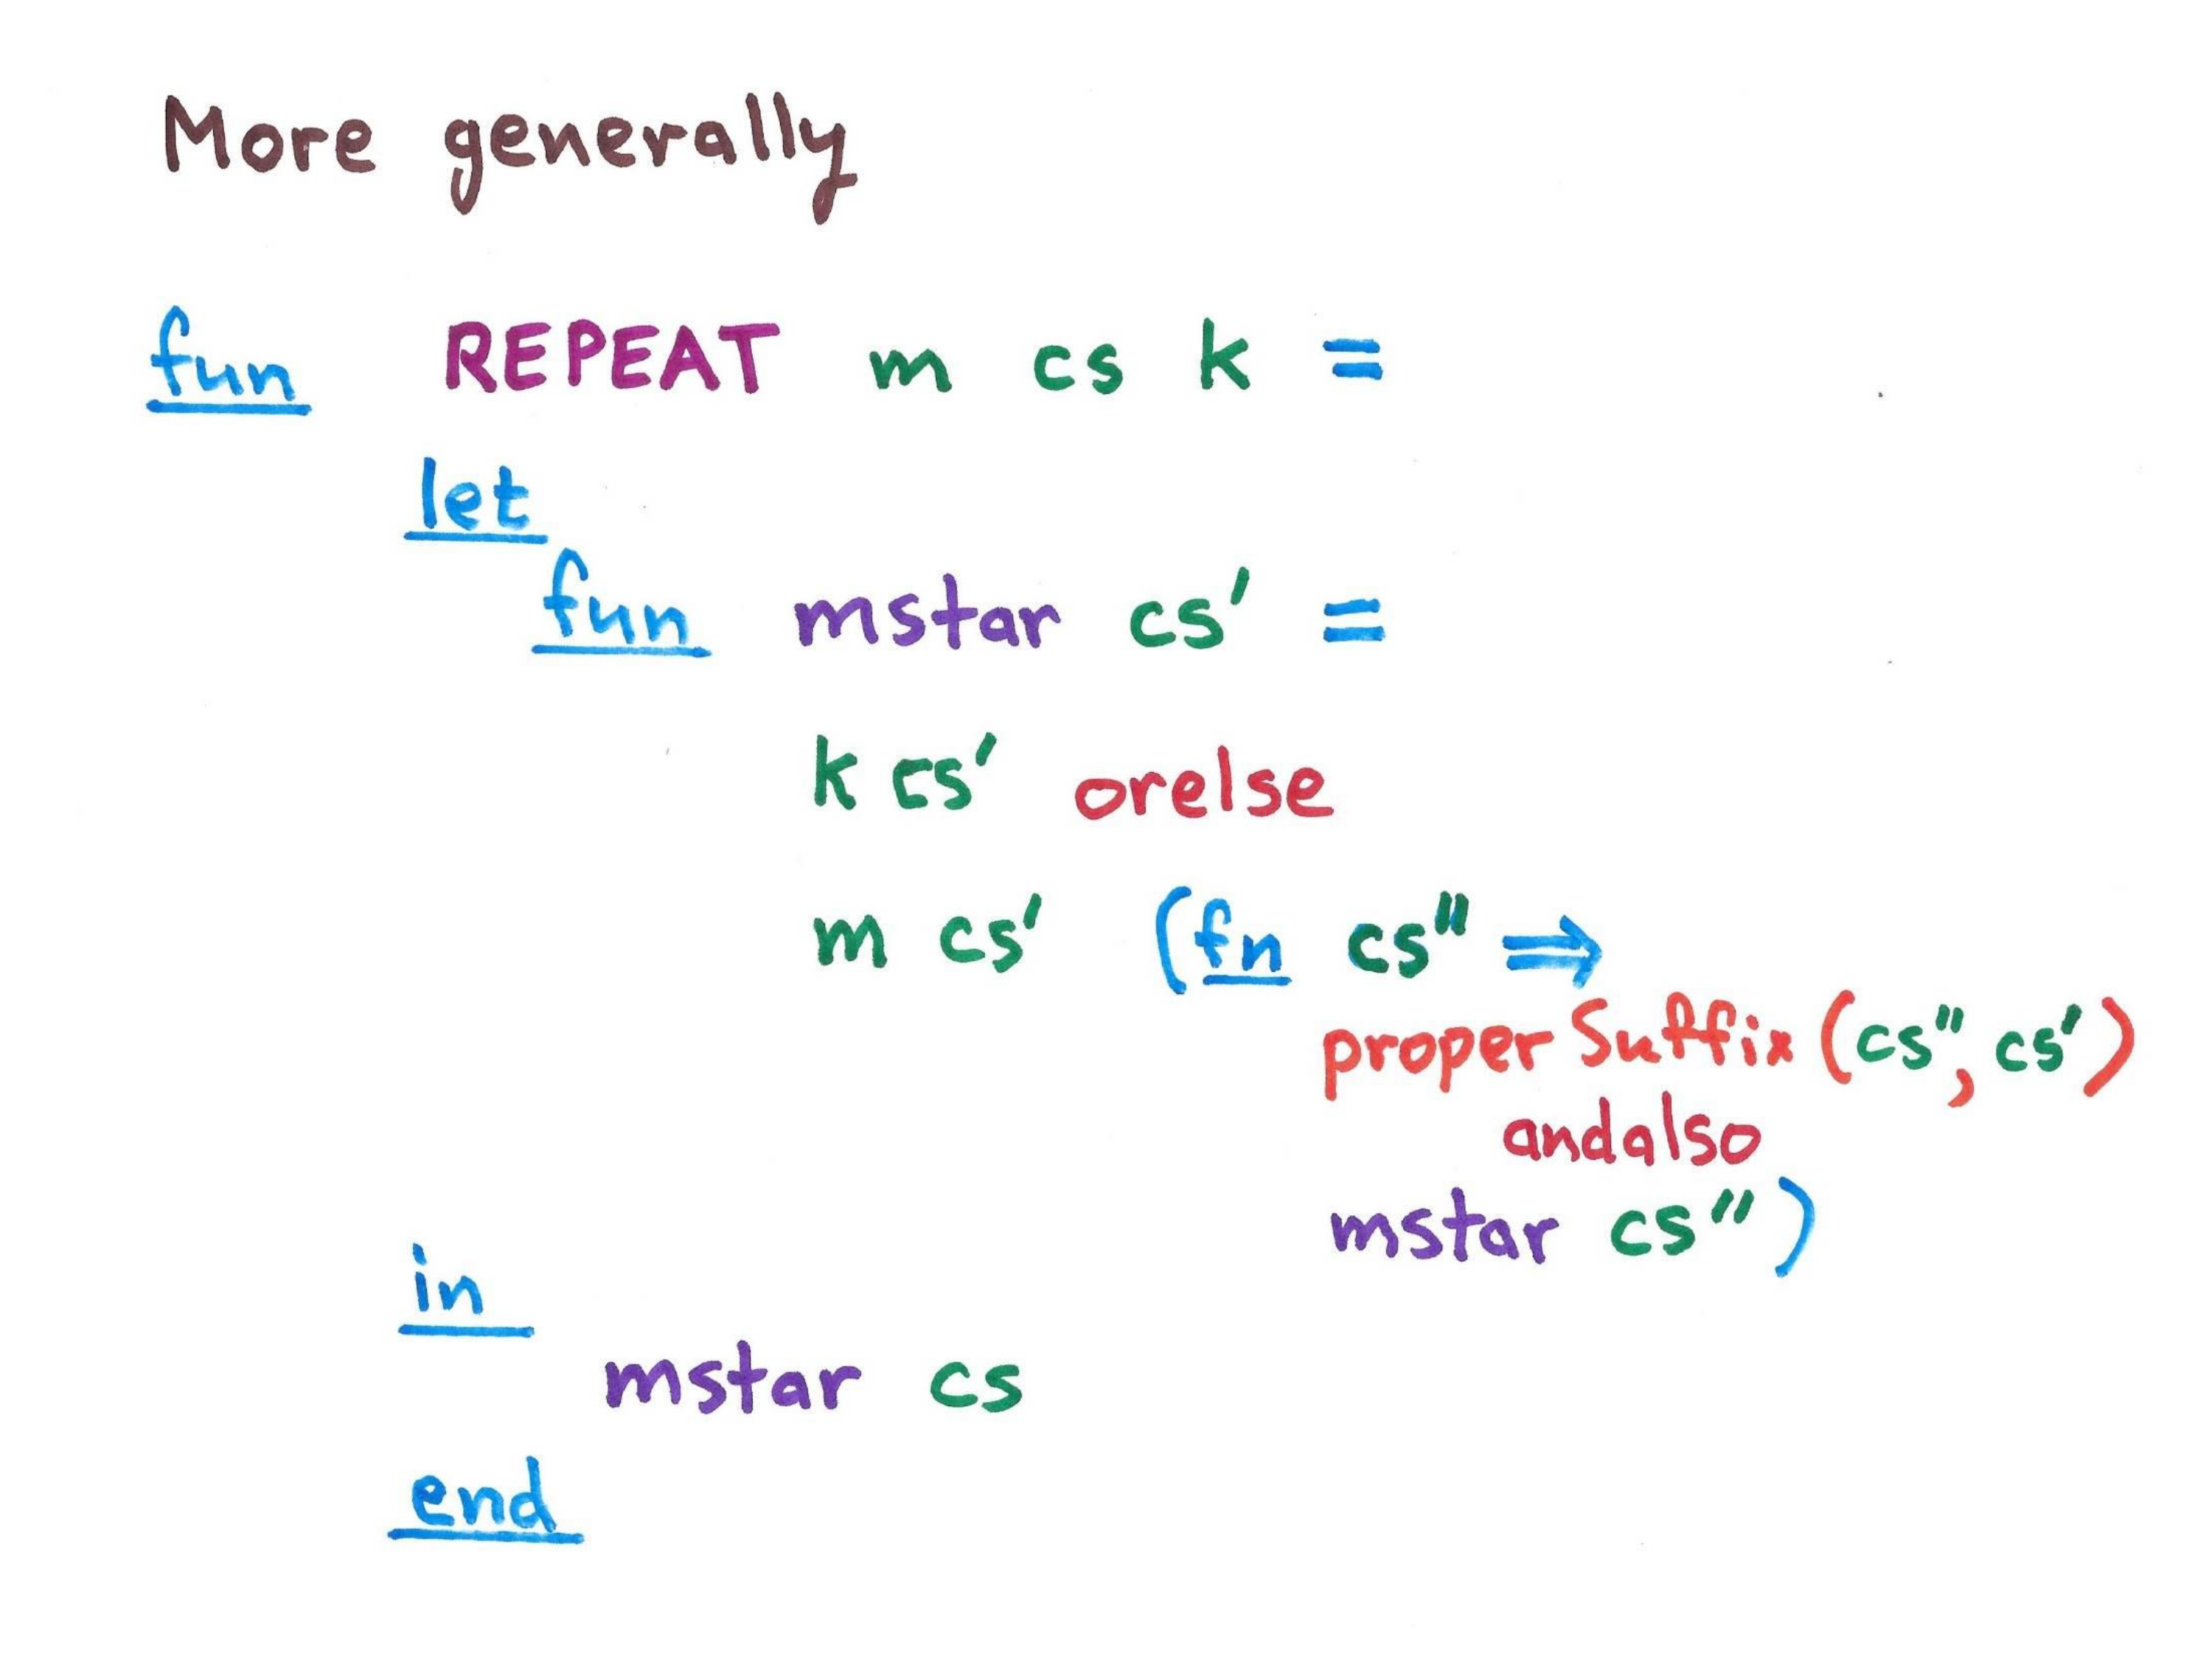 More generally
fun REPEAT m cs k =
let
fun mstar cs' =
k cs' orelse
m cs' (fn cs'' ⇒
properSuffix (cs'', cs')
andalso
mstar cs'')
in
mstar cs
end